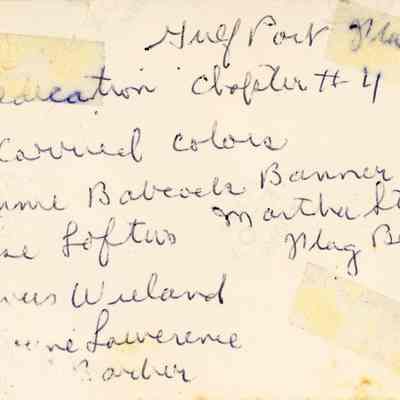 Gulf Port
edication Chapter #4
Carried colors
Babcock Banner
Loftus Martha St
Flag Be
Wieland
Lawerence
Barber